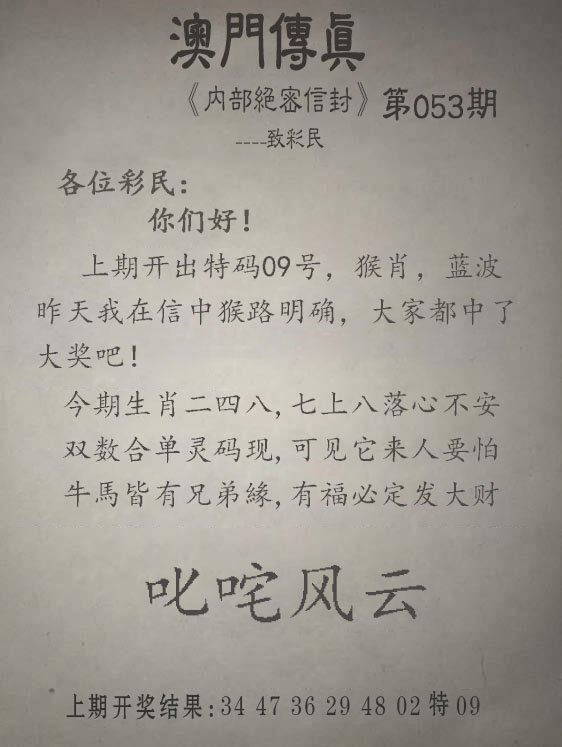 澳門傳眞
《内部絕密信封》第053期
----致彩民
各位彩民：
你们好！
上期开出特码09号，猴肖，蓝波
昨天我在信中猴路明确，大家都中了
大奖吧！
今期生肖二四八,七上八落心不安
双数合单灵码现,可见它来人要怕
牛馬皆有兄弟緣,有福必定发大财
叱咤风云
上期开奖结果:34 47 36 29 48 02 特 09